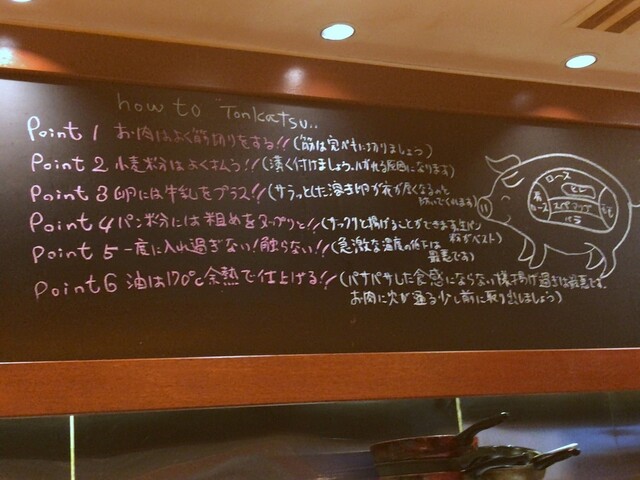 how to Tonkatsu..
Point 1 お肉はよく筋切りをする!!(筋は完ぺきに切りましょう)
Point 2 小麦粉はよく払う!!(薄く付けましょう。はがれる原因になります)
Point 3 卵には牛乳をプラス!!(サラッとした溶き卵が衣が厚くなるのを
防いでくれます)
Point 4 パン粉には粗めをタップリと!!(サックリと揚げることができます生パン
粉がベスト)
Point 5 一度に入れ過ぎない!触らない!!(急激な温度の低下は
最悪です)
Point 6 油は170℃余熱で仕上げる!!(パサパサした食感にならない様揚げ過ぎは最悪です。
お肉に火が通る少し前に取り出しましょう)
ロース
ヒレ
肩
ロース
スペアリブ
もも
バラ